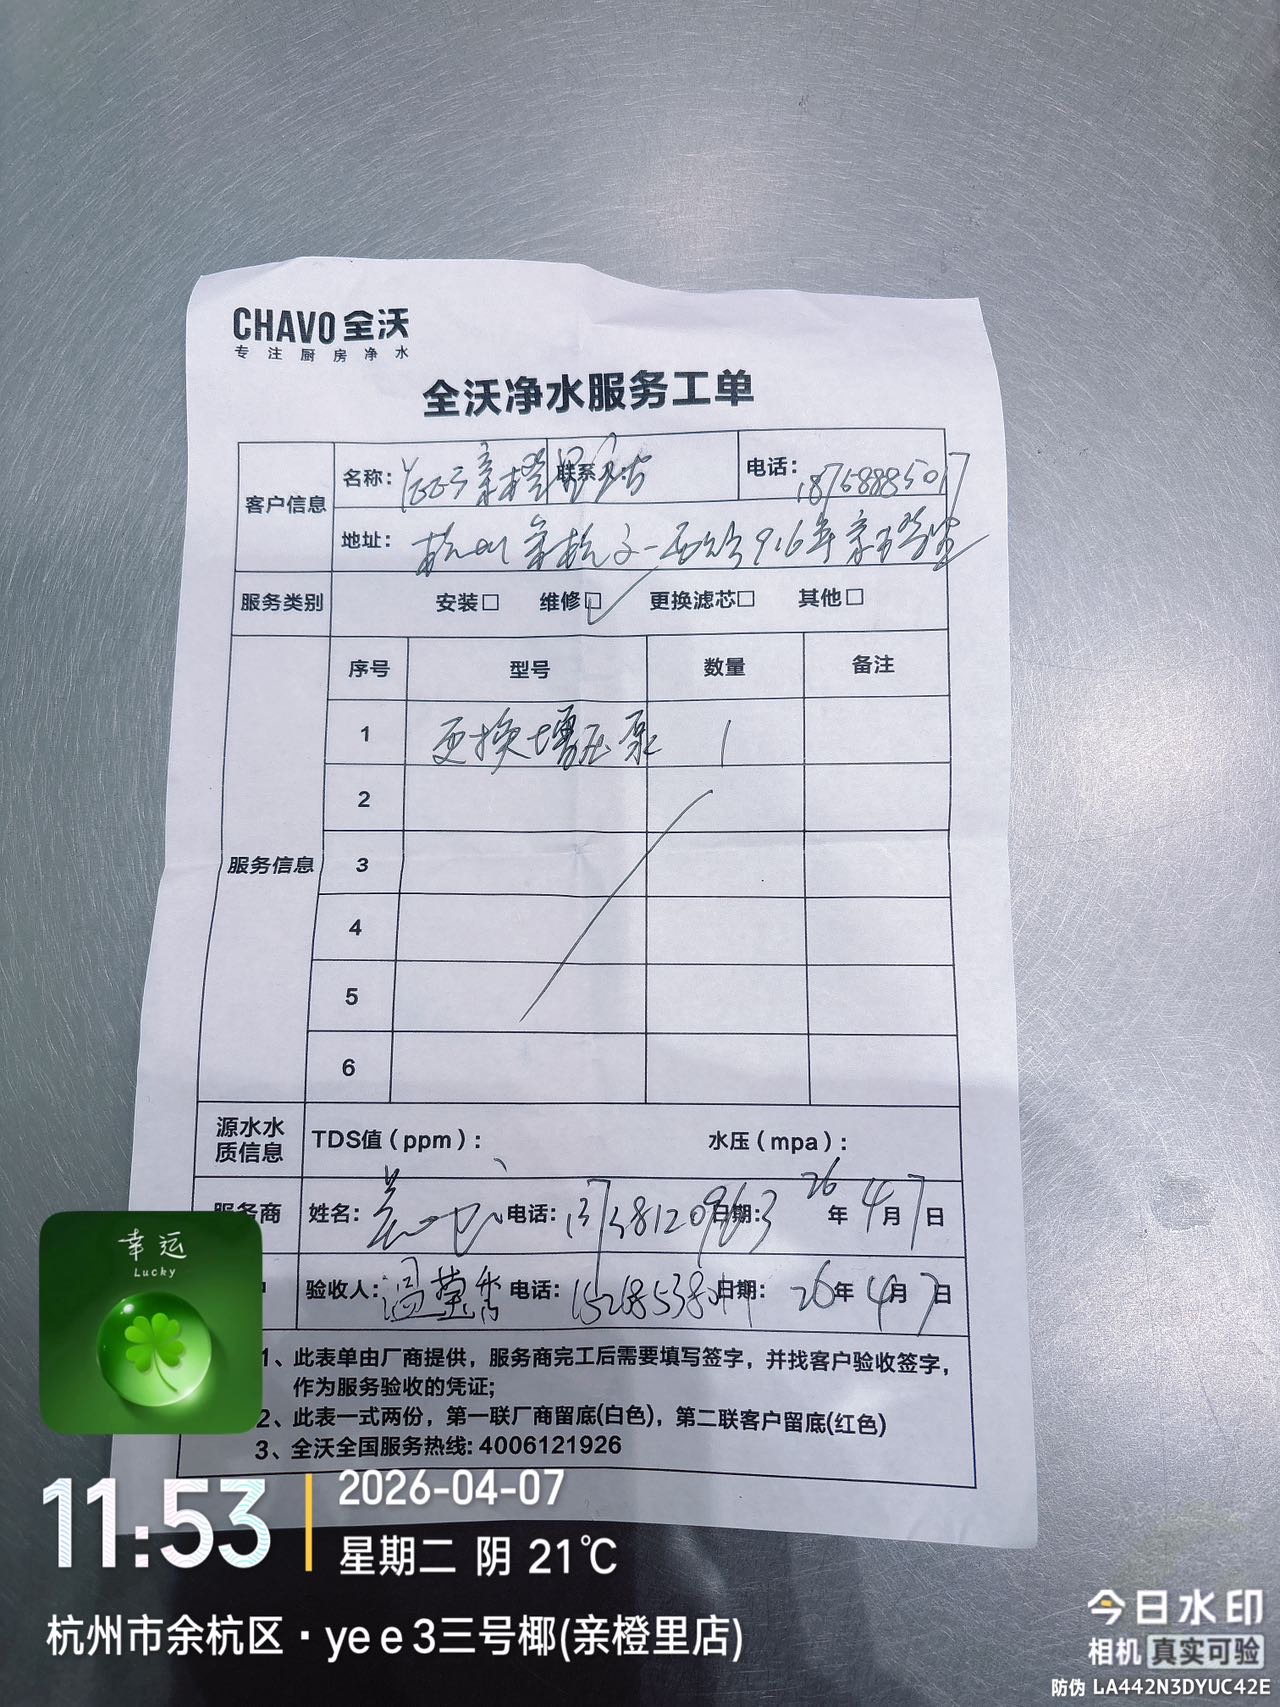 CHAVO 全沃
专注厨房净水
全沃净水服务工单
客户信息
名称: yee3亲橙里店 联系人: 电话: 18768885017
地址: 杭州余杭文一西路916号亲橙里
服务类别 安装□ 维修☑ 更换滤芯□ 其他□
服务信息
序号 型号 数量 备注
1 更换增压泵 1
2
3
4
5
6
源水水质信息 TDS值(ppm): 水压(mpa):
服务商 姓名: 电话: 日期: 26年4月7日
验收人: 温莹秀 电话: 日期: 26年4月7日
1、此表单由厂商提供，服务商完工后需要填写签字，并找客户验收签字，
作为服务验收的凭证;
2、此表一式两份，第一联厂商留底(白色)，第二联客户留底(红色)
3、全沃全国服务热线: 4006121926
幸运
Lucky
11:53
2026-04-07
星期二 阴 21℃
杭州市余杭区·yee3三号椰(亲橙里店)
今日水印
相机 真实可验
防伪 LA442N3DYUC42E